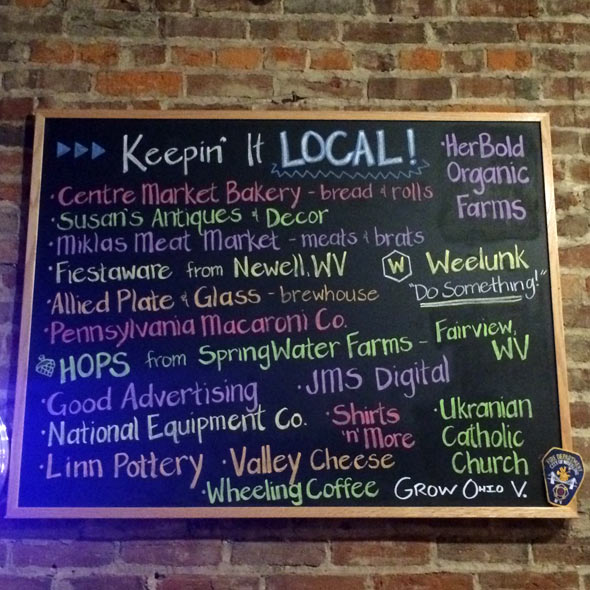 Keepin' It LOCAL!
• Centre Market Bakery - bread & rolls
• Susan's Antiques & Decor
• Miklas Meat Market - meats & brats
• Fiestaware from Newell, WV
• Allied Plate & Glass - brewhouse
• Pennsylvania Macaroni Co.
HOPS from SpringWater Farms - Fairview, WV
• Good Advertising
• JMS Digital
• National Equipment Co.
• Shirts
'n' More
• Linn Pottery
• Valley Cheese
• Wheeling Coffee
• HerBold
Organic
Farms
W Weelunk
"Do Something!"
• Ukranian
Catholic
Church
Grow Ohio V.
FIRE DEPARTMENT